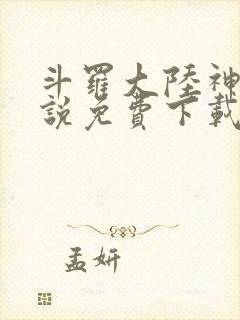 斗羅大陸神
說免費下載
孟妍